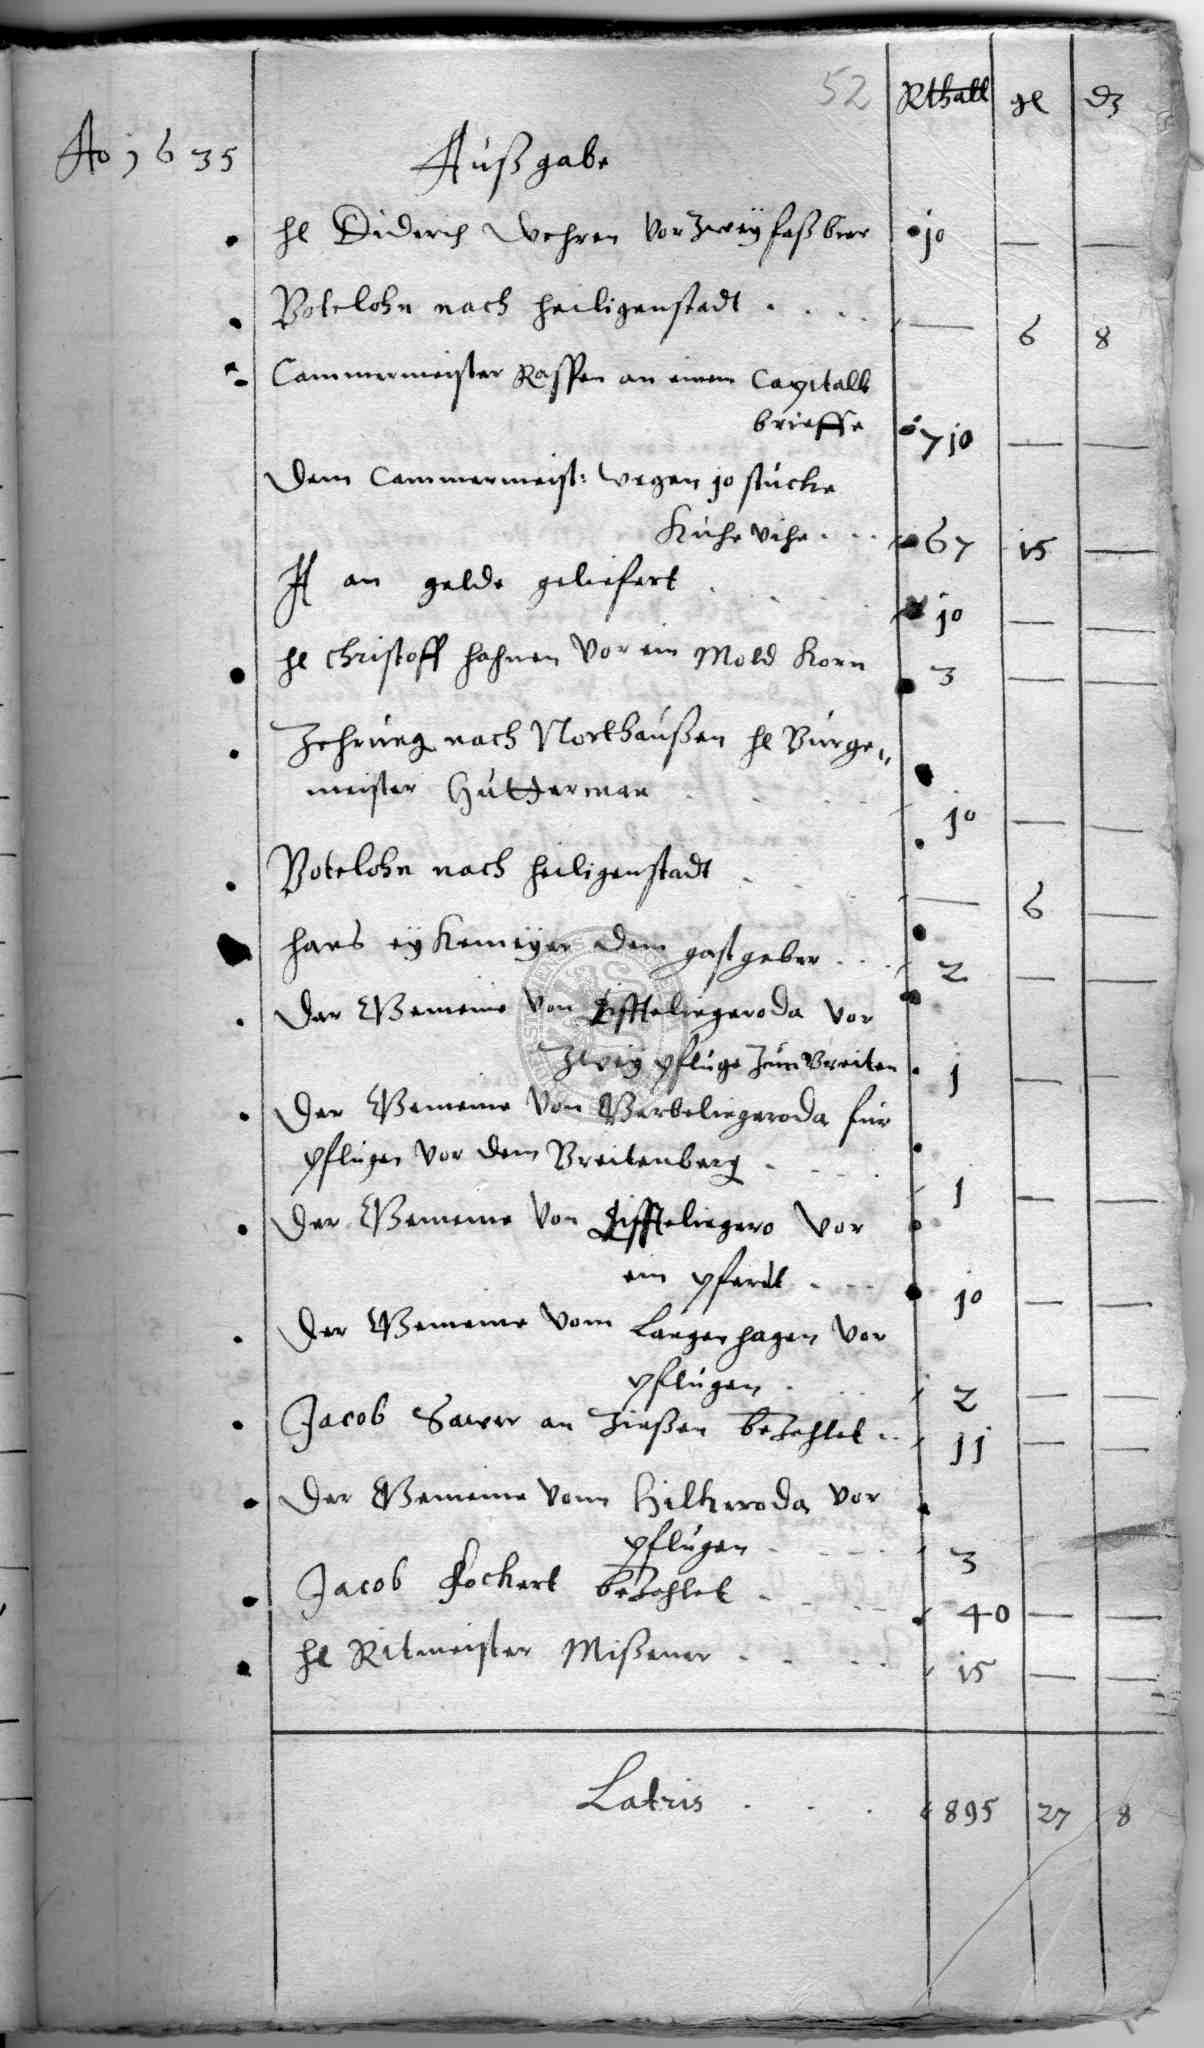 52 Rthall gl d
Ao 1635 Außgabe
hl Diderich Wehren vor Zweÿ faß bier 10 — —
Botelohn nach heiligenstadt . . . . — 6 8
Cammermeister Raffen an einem Capitalls
brieffe 710 — —
Dem Cammermeist: wegen 10 stücke
Kuhe vihe . . . 67 15 —
It an gelde geliefert . . . . 10 — —
hl Christoff hahnen vor ein Mold Korn 3 — —
Zehrung nach Northaußen hl Burge„
meister Hutterman . . . . 10 — —
Botelohn nach heiligenstadt . . . — 6 —
hans eykemeÿer dem gastgeber . . . 2 — —
Der Gemeine von Giffteliegeroda vor
Zweÿ pfluge Zum Breiten 1 — —
Der Gemeine von Werbeliegeroda fur
pflugen vor dem Breitenberg . . . . 1 — —
Der Gemeine von Giffteliegero vor
ein pferdt . . . 10 — —
Der Gemeine vom Langenhagen vor
pflugen . . . 2 — —
Jacob Sawer an Zinßen bezahlet . . 11 — —
Der Gemeine vonn Hilkeroda vor
pflugen . . . . 3
Jacob Fockert bezahlet . . . . 40 — —
hl Ritmeister Mißener . . . . 15 — —
Latris . . . 895 27 8